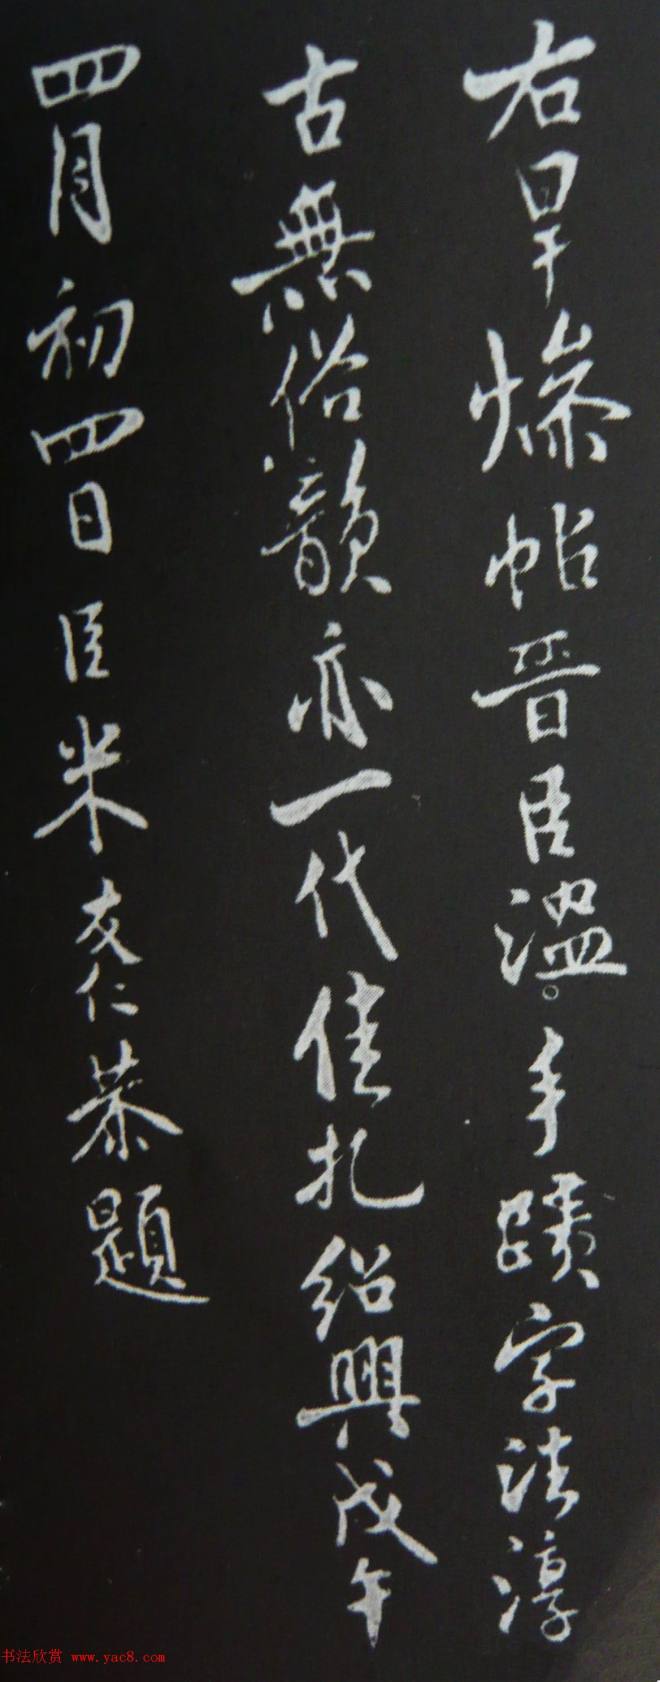 右旱燥帖晋臣温手蹟字法淳
古無俗韻亦一代佳札紹興戊午
四月初四日臣米友仁恭題
书法欣赏 www.yac8.com